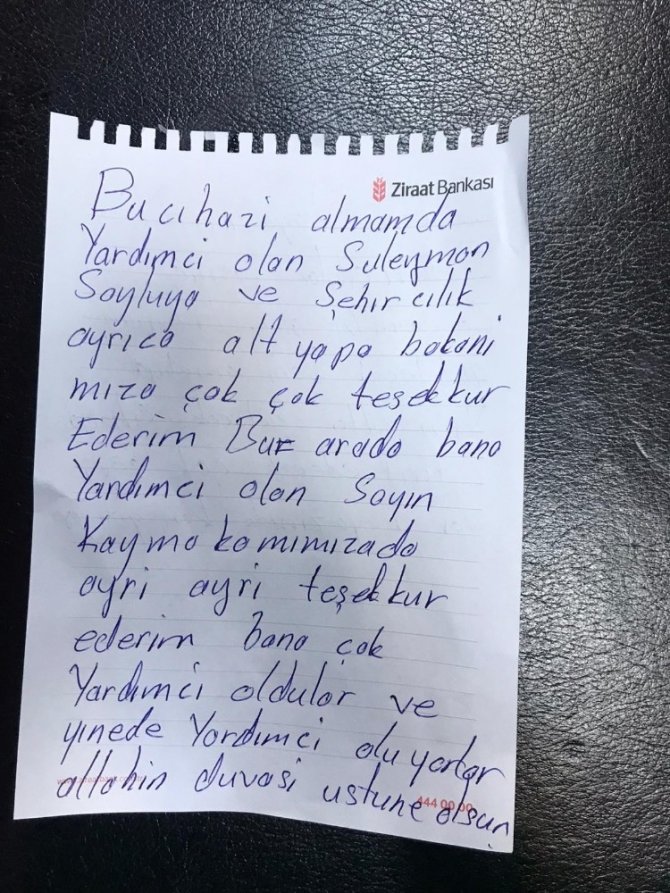 Ziraat Bankası
Bu cıhazi almamda
Yardımci olan Suleyman
Soyluya ve Şehırcılık
ayrıca alt yapa bakani
mıza çok çok teşekkur
Ederim Bur arada bana
Yardımci olan Sayın
Kaymakamımızada
ayri ayri teşekkur
ederim bana çok
Yardımci oldular ve
yınede Yardımci oluyorlar
allahin duvasi ustune olsun
444 00 00